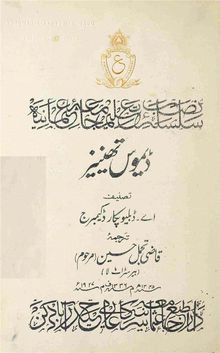 ع
سلسلۂ نصاب تعلیم جامعہ عثمانیہ
ڈیموس تھینیز
تصنیف
اے۔ ڈبلیو پکارڈ کیمبرج
ترجمۂ
قاضی تجمل حسین (مرحوم)
(بیرسٹر ایٹ لا)
دارالطبع جامعہ عثمانیہ سرکار عالی حیدرآباد دکن